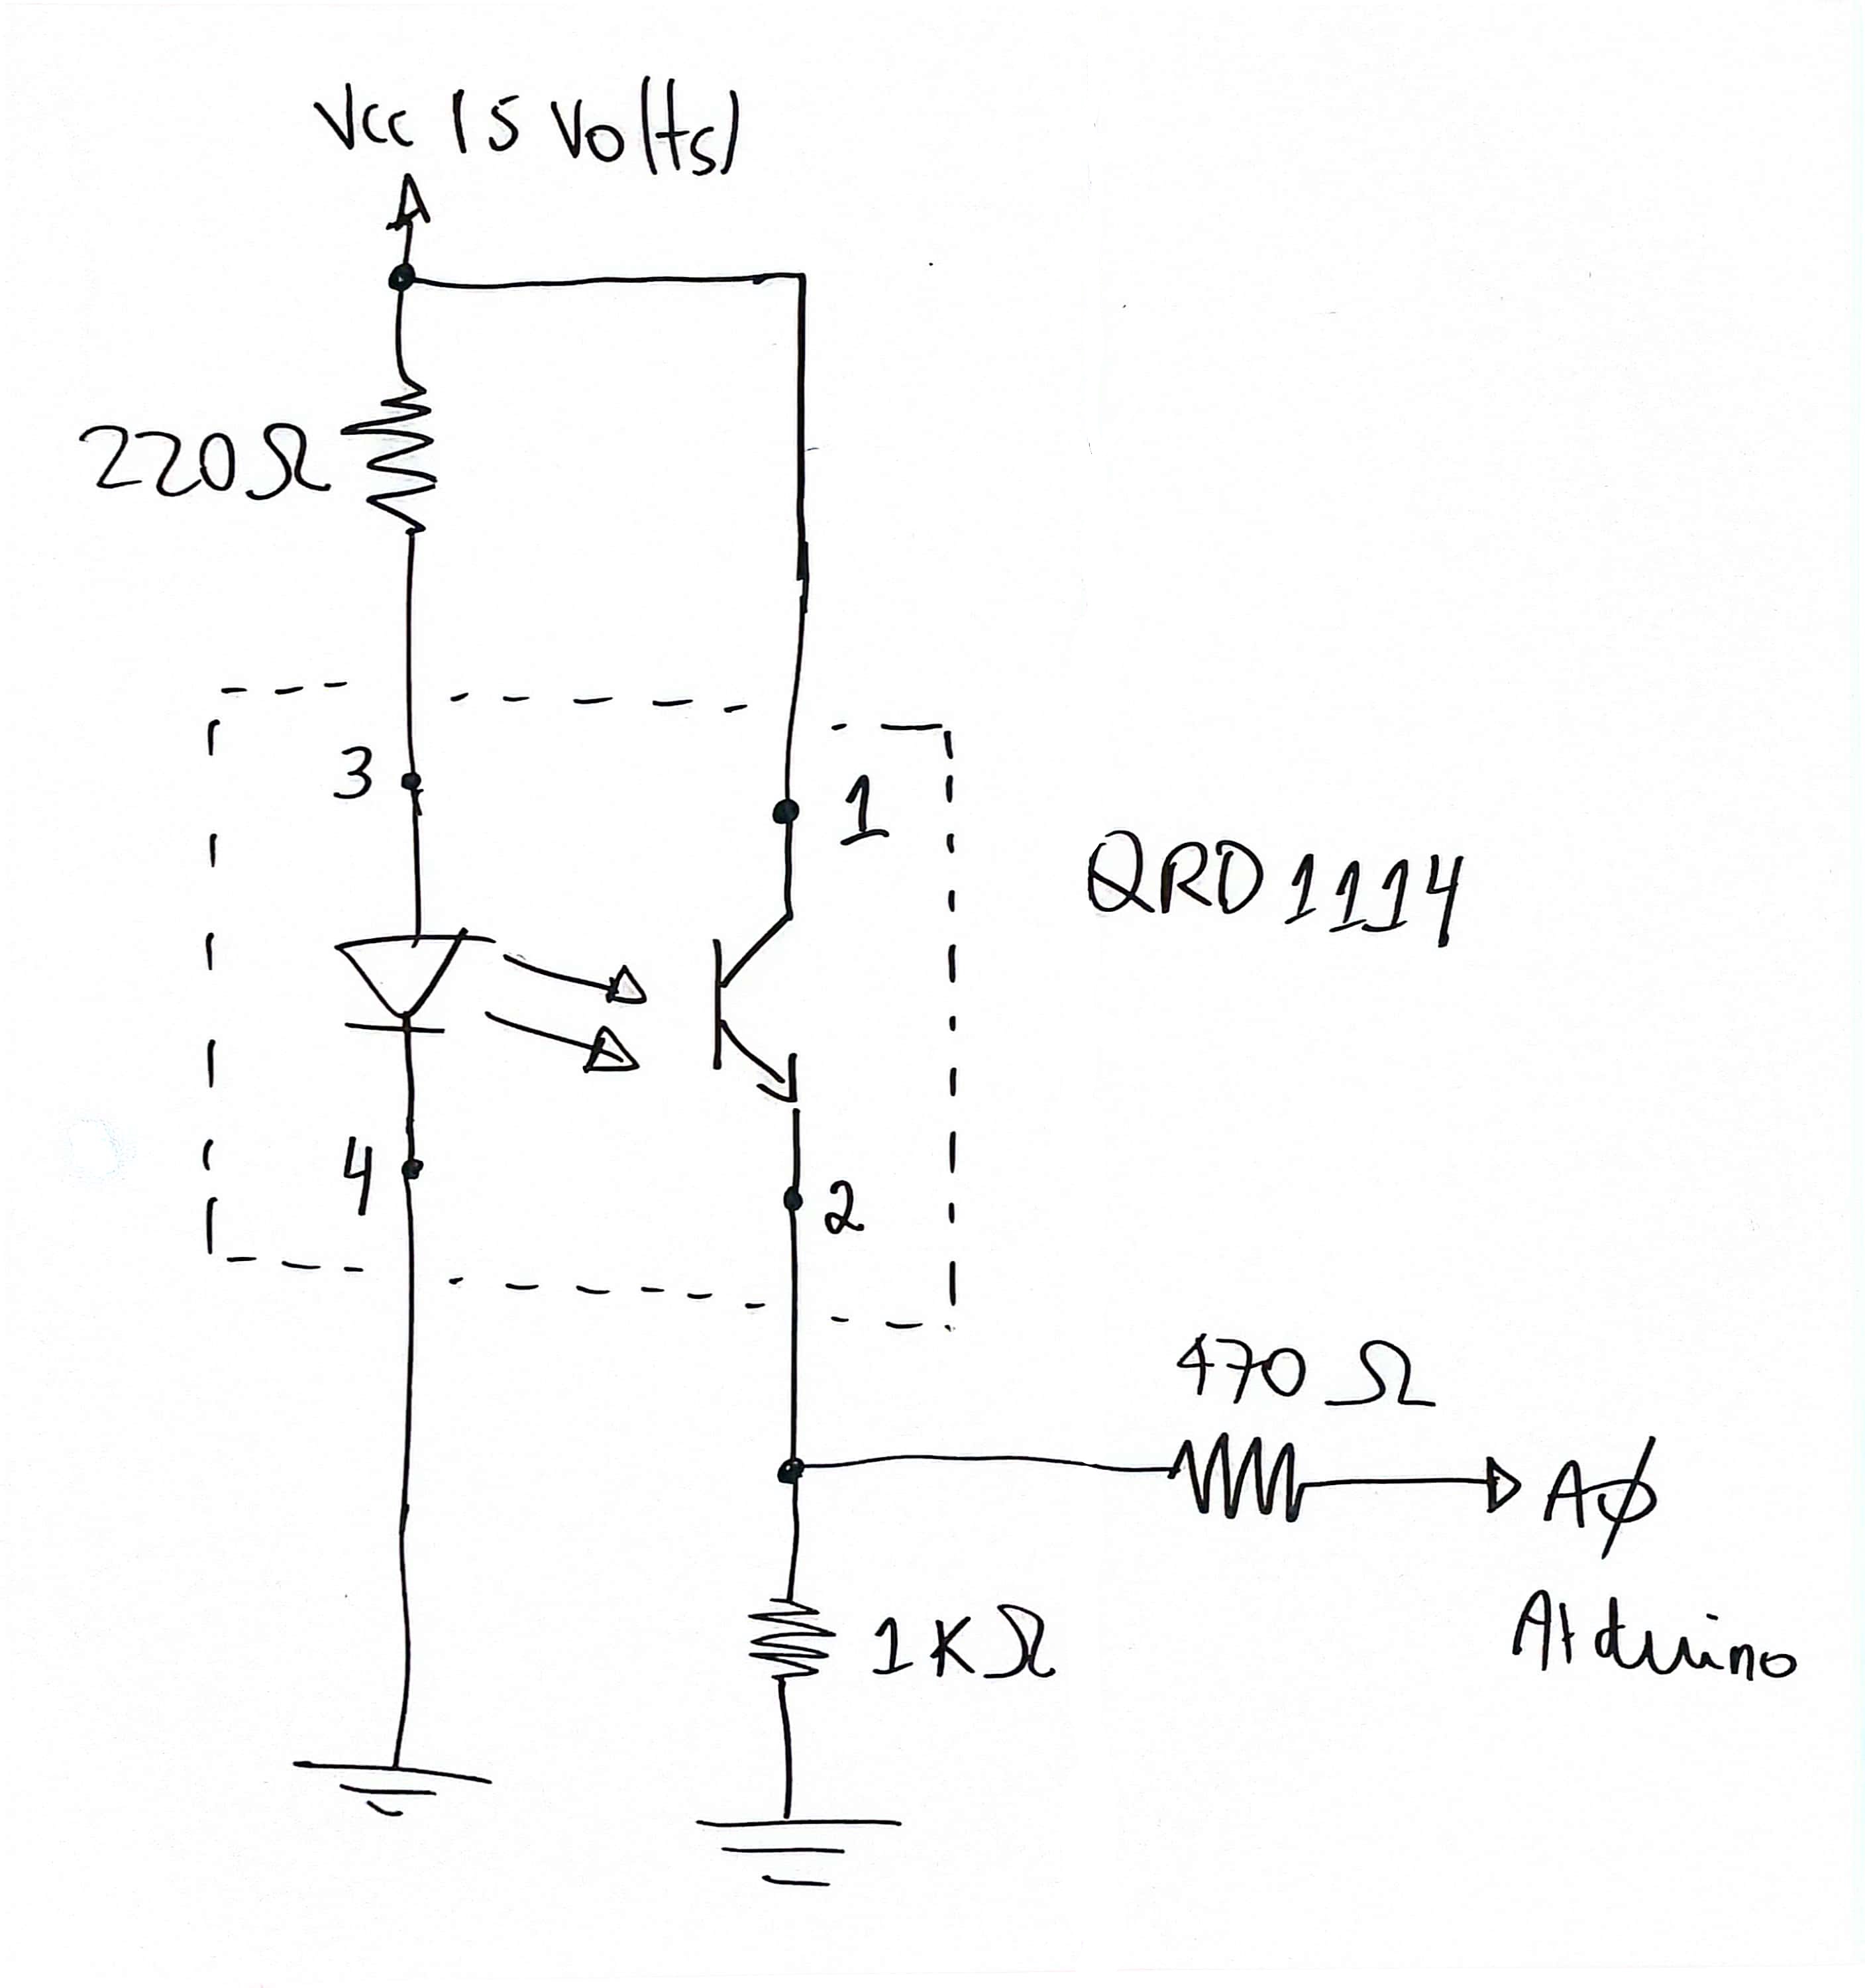 Vcc (5 Volts)
220Ω
3
1
QRD1114
4
2
470 Ω
AØ
Arduino
1KΩ